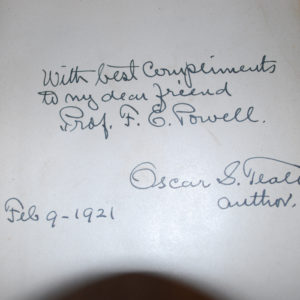 With best Compliments
to my dear friend
Prof. F. E. Powell.
Oscar S. Teale
author.
Feb 9-1921